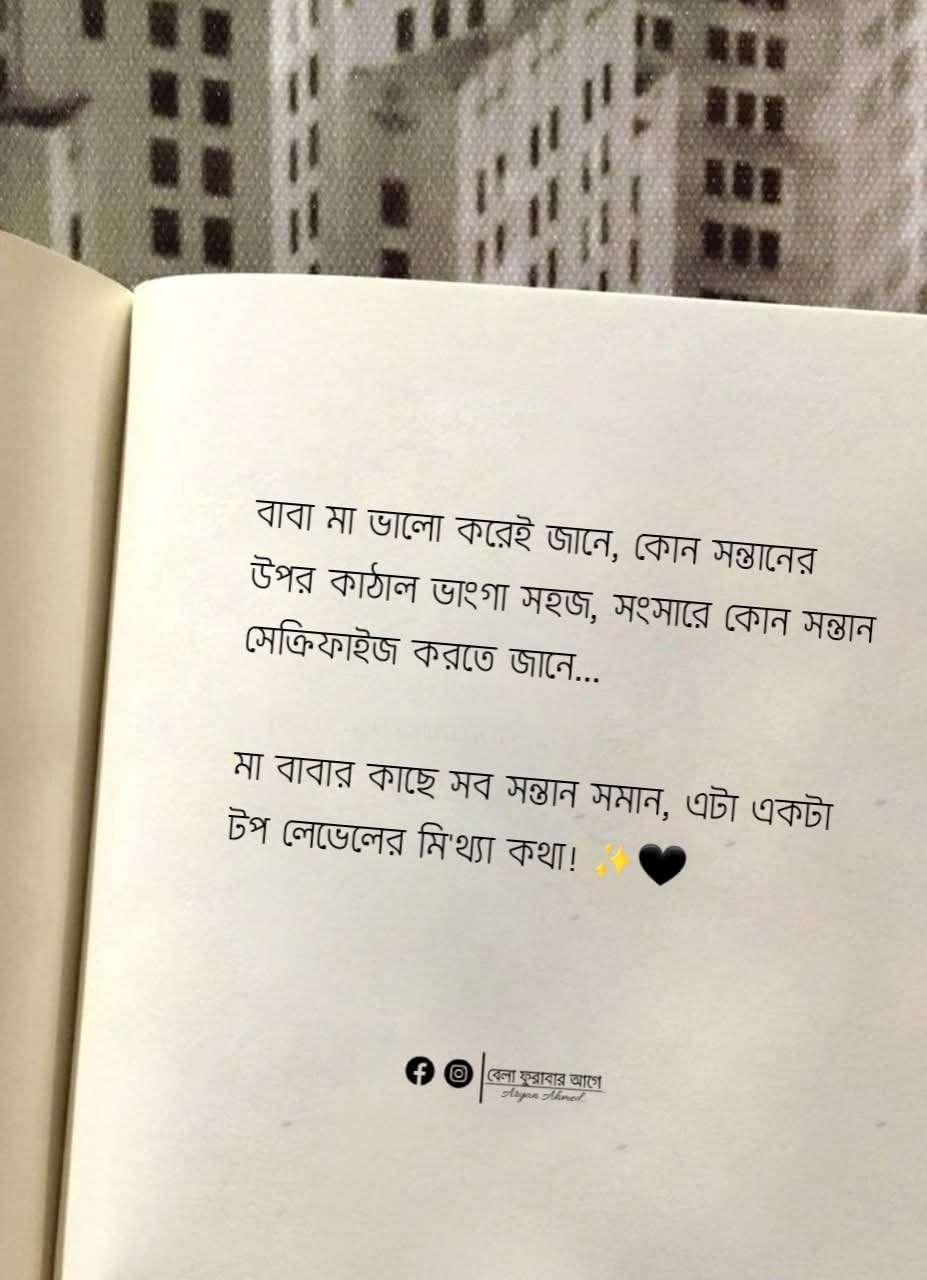 বাবা মা ভালো করেই জানে, কোন সন্তানের
উপর কাঠাল ভাংগা সহজ, সংসারে কোন সন্তান
সেক্রিফাইজ করতে জানে...
মা বাবার কাছে সব সন্তান সমান, এটা একটা
টপ লেভেলের মি'থ্যা কথা! ✨🖤
বেলা ফুরাবার আগে
Aryan Ahmed